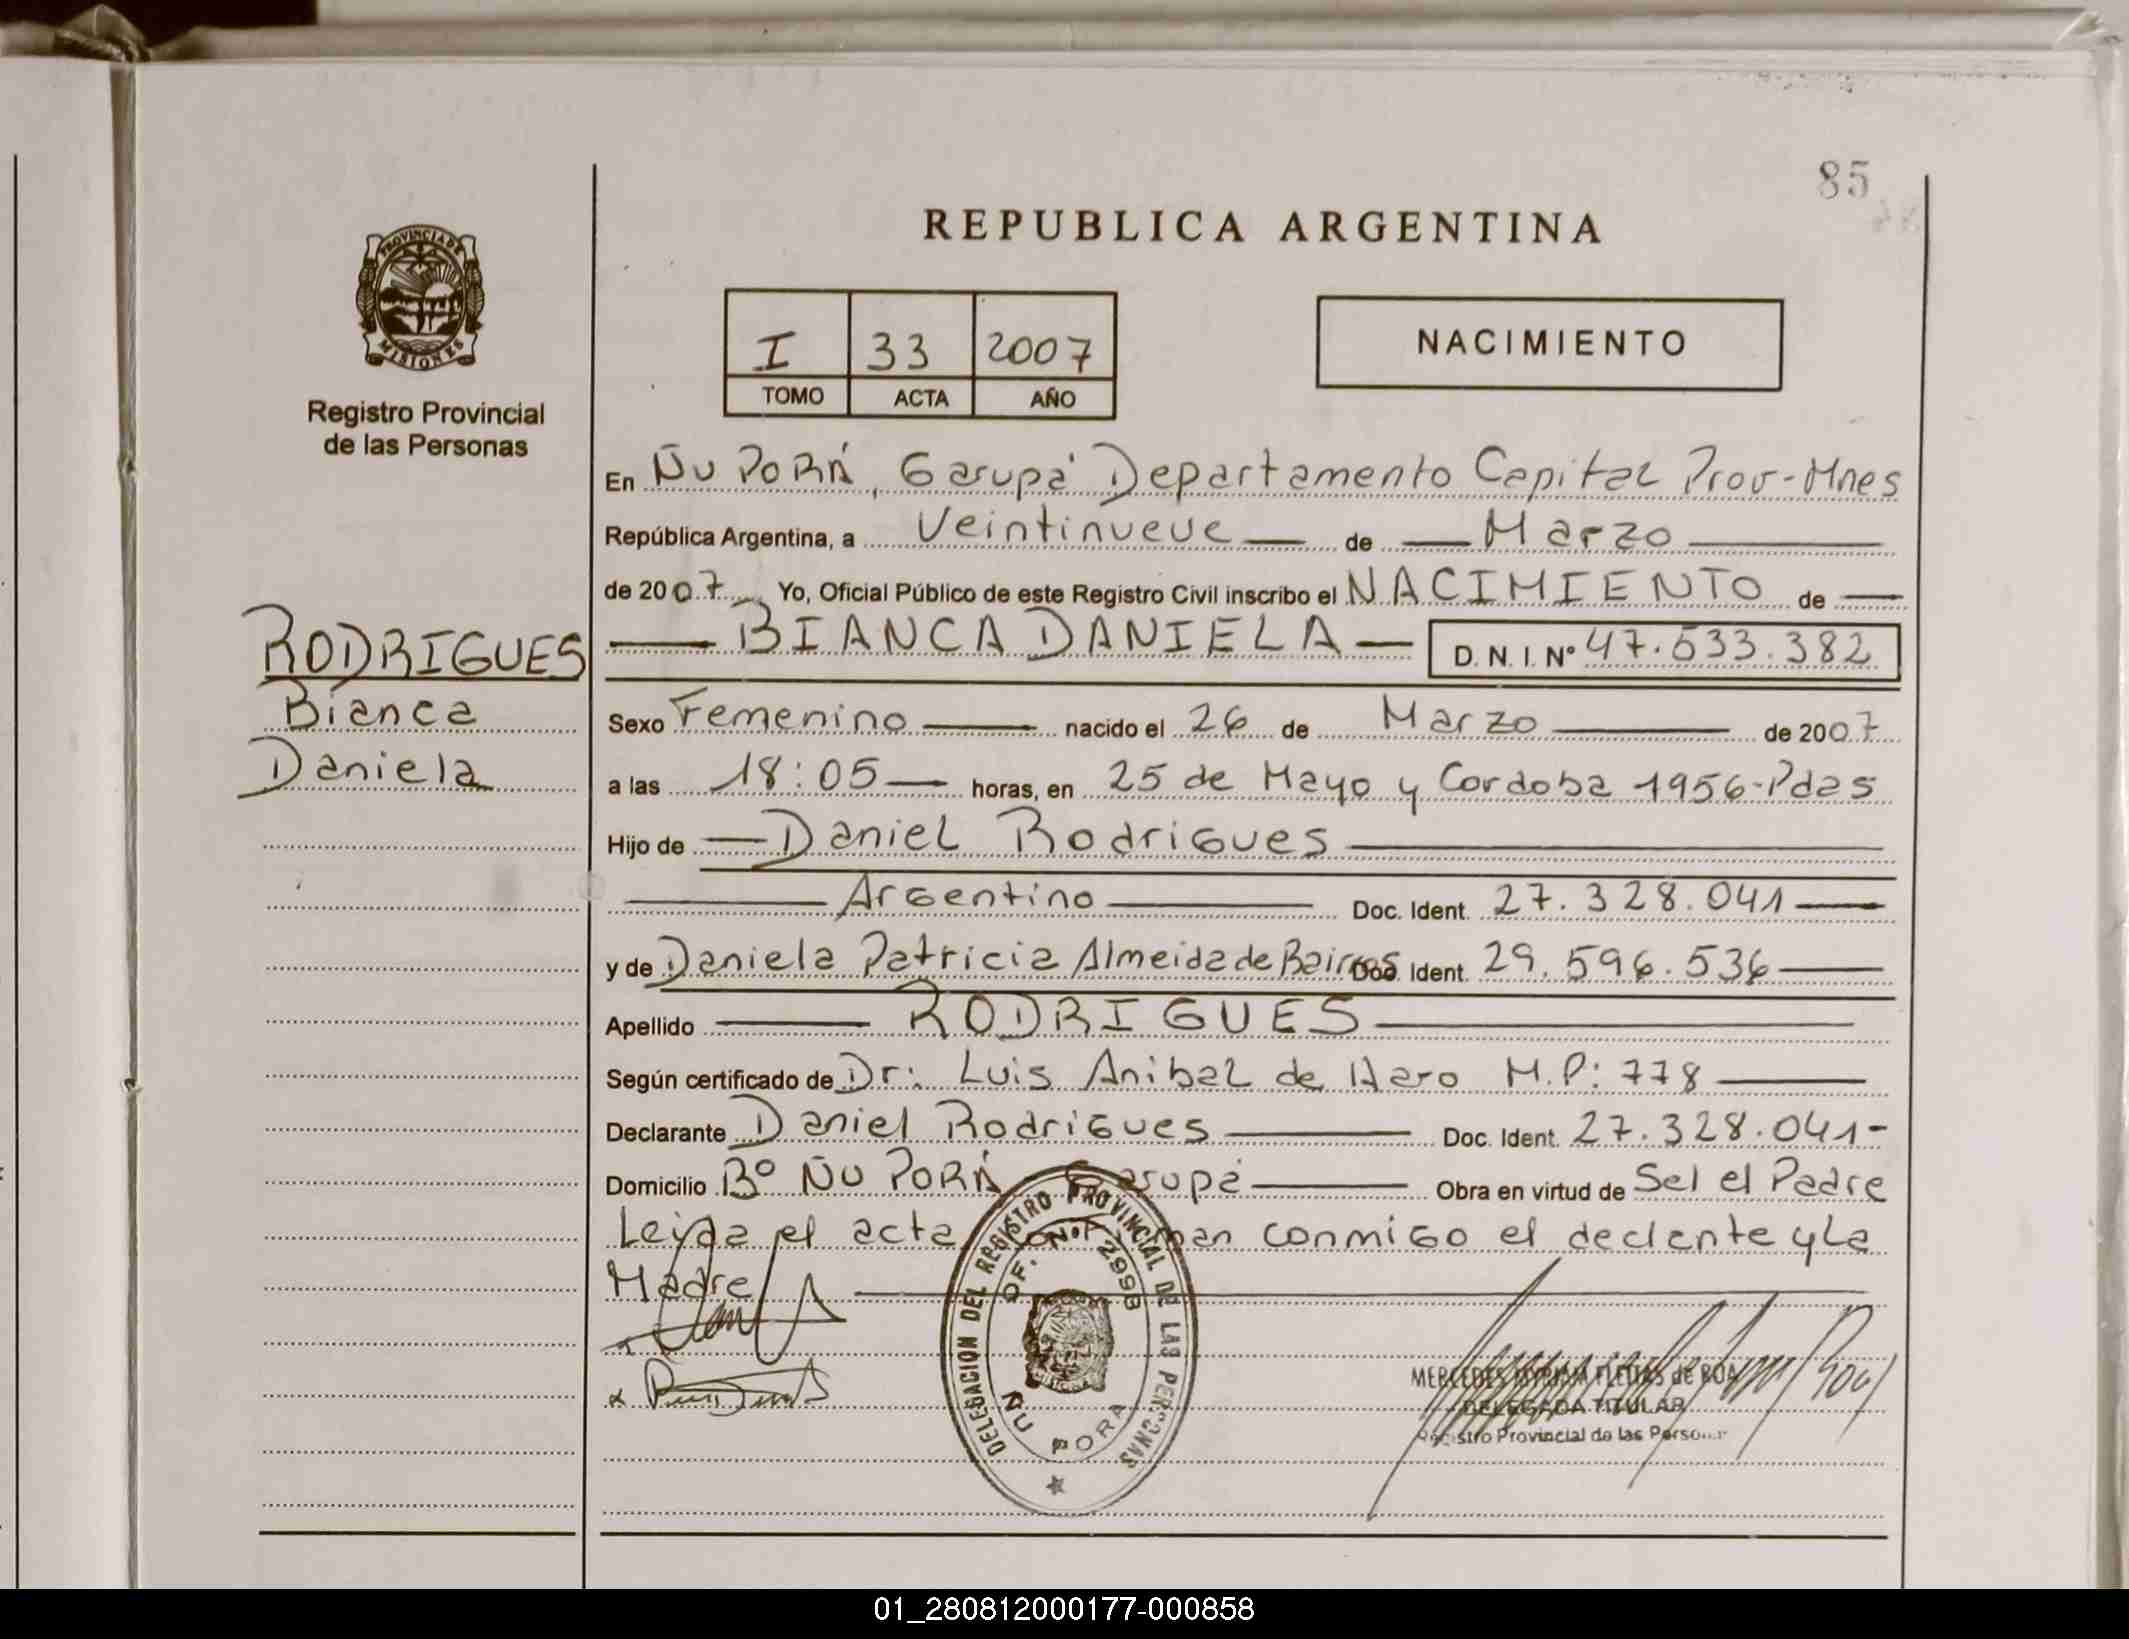 85
REPUBLICA ARGENTINA
PROVINCIA DE MISIONES
Registro Provincial
de las Personas
I 33 2007
TOMO ACTA AÑO
NACIMIENTO
En Ñu PORÁ, Garupá Departamento Capital Prov-Mnes
República Argentina, a Veintinueve de Marzo
de 2007 Yo, Oficial Público de este Registro Civil inscribo el NACIMIENTO de
BIANCA DANIELA D. N. I. Nº 47.533.382
RODRIGUES
Bianca
Daniela
Sexo Femenino nacido el 26 de Marzo de 2007
a las 18:05 horas, en 25 de Mayo y Cordoba 1956-Pdas
Hijo de Daniel Rodrigues
Argentino Doc. Ident. 27.328.041
y de Daniela Patricia Almeida de Bairros Doc. Ident. 29.596.536
Apellido RODRIGUES
Según certificado de Dr: Luis Anibal de Haro M.P: 778
Declarante Daniel Rodrigues Doc. Ident. 27.328.041-
Domicilio Bº ÑU PORÁ Garupá Obra en virtud de Sel el Padre
Leida el acta conmigo el declante y La
Madre
DELEGACION DEL REGISTRO PROVINCIAL DE LAS PERSONAS
OF. Nº 2998
ÑU PORA
MERCEDES MYRIAM FLEITAS de BOA
DELEGADA TITULAR
Registro Provincial de las Personas
01_280812000177-000858